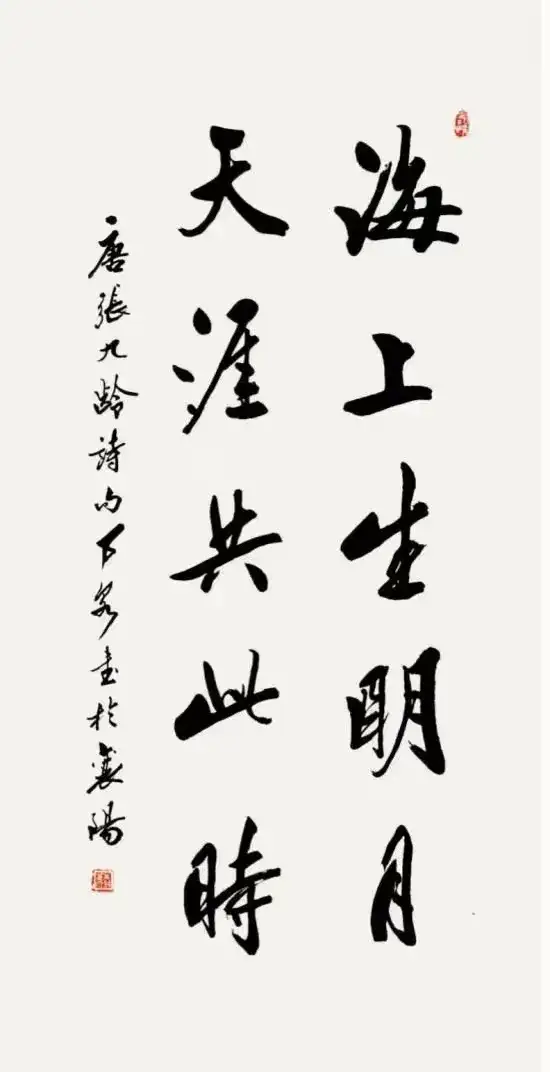 海上生明月
天涯共此時
唐張九齡詩句下泉书於襄陽